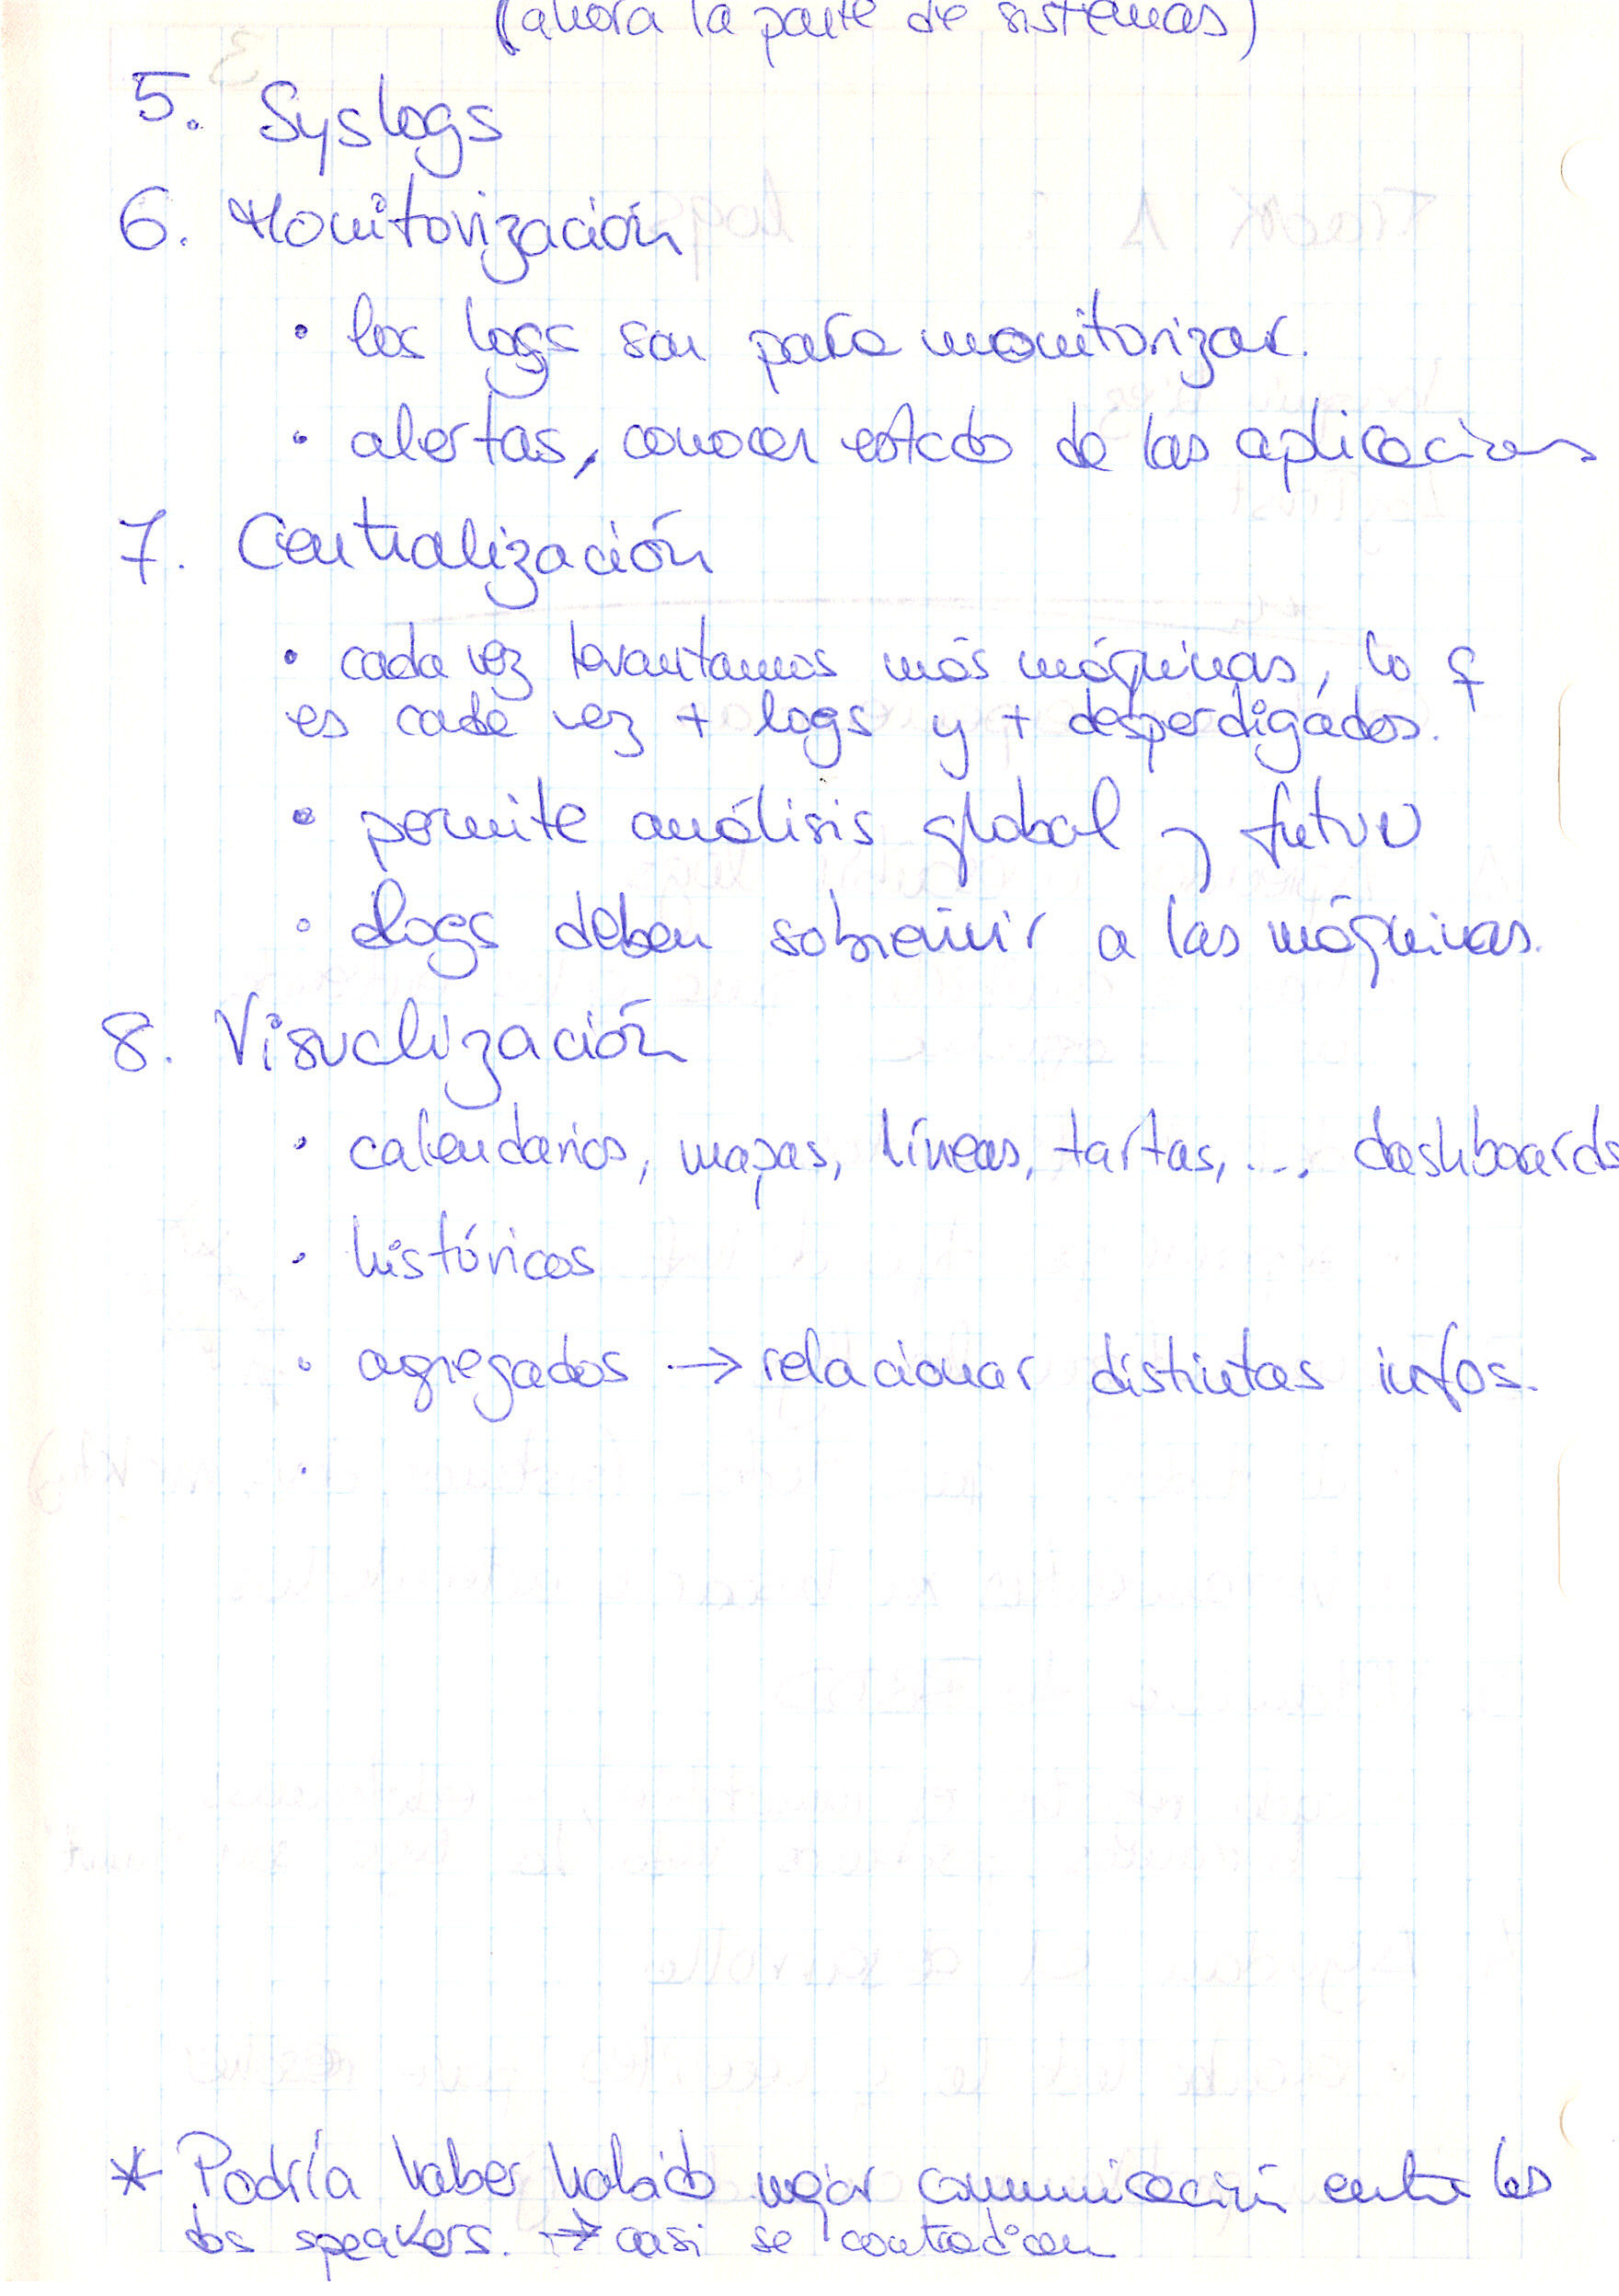 (ahora la parte de sistemas)
5. Syslogs
6. Monitorización
• los logs son para monitorizar.
• alertas, conocer estado de las aplicaciones
7. Centralización
• cada vez levantamos más máquinas, lo q
es cada vez + logs y + desperdigados.
• permite análisis global y futuro
• logs deben sobrevivir a las máquinas.
8. Visualización
• calendarios, mapas, líneas, tartas, ... dashboards
• históricos
• agregados → relacionar distintas infos.
•
* Podría haber habido mejor comunicación entre los
dos speakers. → casi se contradicen